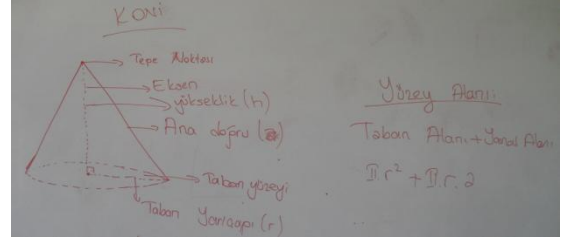 KONİ
Tepe Noktası
Eksen
yükseklik (h)
Ana doğru (a)
Taban yüzeyi
Taban Yarıçapı (r)
Yüzey Alanı:
Taban Alanı + Yanal Alanı
π.r² + π.r.a